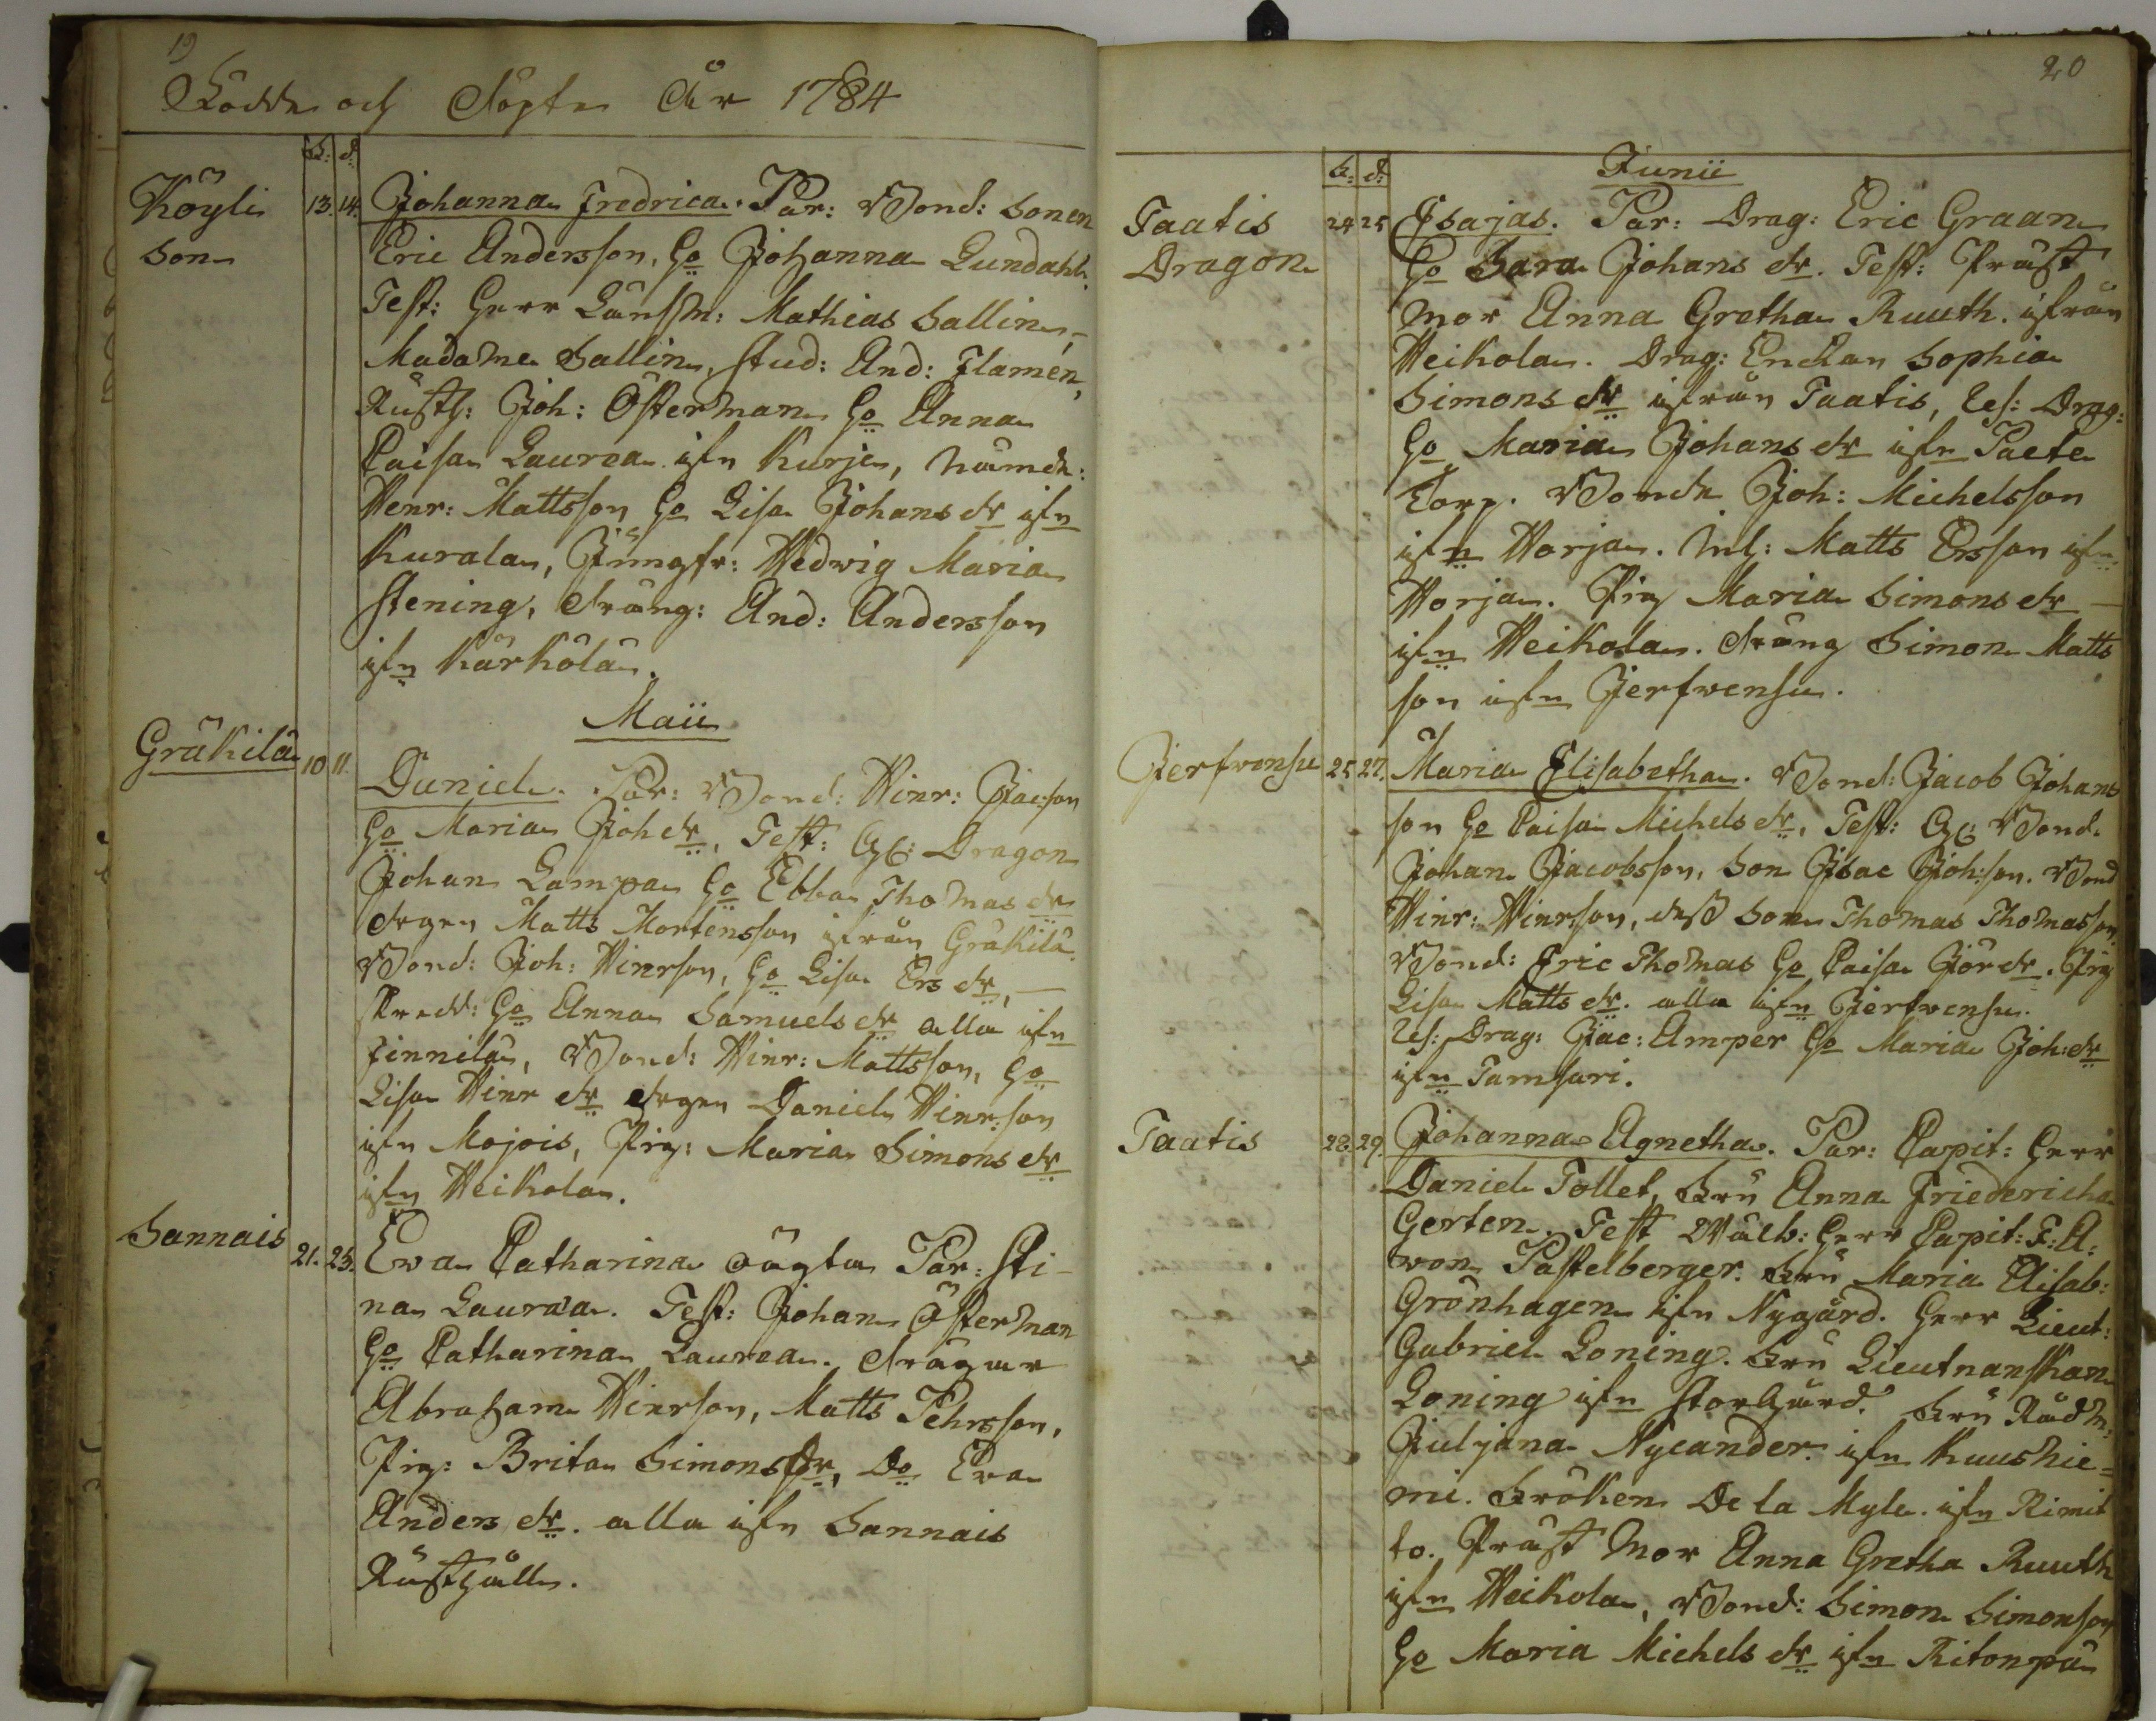 19
Födde och Döpte År 1784
F: d:
Köyli 13. 14. Johanna Fredrica. Par: Bond: Sonen
Son Eric Andersson, Ho Johanna Lundahl.
Test: Herr Länssm: Mathias Sallin,
Madame Sallin, Stud: And: Flamén,
Rusth: Joh: Österman Ho Anna
Caisa Laurea ifn Kurje, Nämdem:
Henr: Mattsson Ho Lisa Johans dr ifn
Kurala, Jungfr: Hedwig Maria
Stening, Dräng: And: Andersson
ifn Kärkölä.
Maii
Gräkilä 10 11. Daniel. Par: Bond: Hinr: Jacson
Ho Maria Joh dr, Test: Dragon
Johan Lampa Ho Ebba Thomas dr
drgen Matts Mortensson ifrån Gräkilä
Bond: Joh: Hinrson, Ho Lisa Ers dr,
Skredd: Ho Anna Samuels dr alla ifn
Finnilä, Bond: Hinr: Mattsson, Ho
Lisa Hinr dr drgen Daniel Hinr:son
ifn Mojois, Pig: Maria Simons dr
ifn Heikola.
Sannais 21. 23. Eva Catharina oägta Par: Sti-
na Lauraa. Test: Johan Österman
Ho Catharina Laurea. Drägar
Abraham Hinrson, Matts Pehrsson,
Pig: Brita Simons dr, Do Eva
Anders dr. alla ifn Sannais
Rusthåll.
20
F: d:
Junii
Taatis 24 25 Esajas. Par: Drag: Eric Graan
Dragon Ho Sara Johans dr. Test: Präst
mor Anna Gretha Ruuth. ifrån
Heikola. Drag: Enckan Sophia
Simons dr ifrån Taatis, Drag:
Ho Maria Johans dr ifn Paete
Torp. Bonde Joh: Michelsson
ifn Horja. Matts Ersson ifn
Horja. Pig Maria Simons dr
ifn Heikola. Dräng Simon Matts
son ifn Jerfwensu.
Jerfwensu 25 27. Maria Elisabetha. Bond: Jacob Johans
son Ho Caisa Michels dr, Test: Bond.
Johan Jacobsson, Son Isac Joh:son. Bond
Hinr: Hinrson, dess Son Thomas Thomasson.
Bond: Eric Thomas Ho Caisa Jör dr. Pig
Lisa Matts dr. alla ifn Jerfwensu.
Drag: Jac: Amper Ho Maria Joh: dr
ifn Tamsari.
Taatis 28. 29. Johanna Agnetha. Par: Capit: Herr
Daniel Tollet, Fru Anna Friedericha
Gerten. Test Wälb: Herr Capit: F: A:
von Pastelberger. Fru Maria Elisab:
Grönhagen ifn Nygård. Herr Lieut:
Gabriel Loning. Fru Lieutnanskan
Loning ifn Storgård. Fru Rådm:
Juljana Nycander. ifn Kuushie=
mi. Fröken De la Myle. ifn Rimit
to. Präst Mor Anna Gretha Ruuth
ifn Heikola, Bond: Simon Simonson
Ho Maria Michels dr ifn Ritonpä